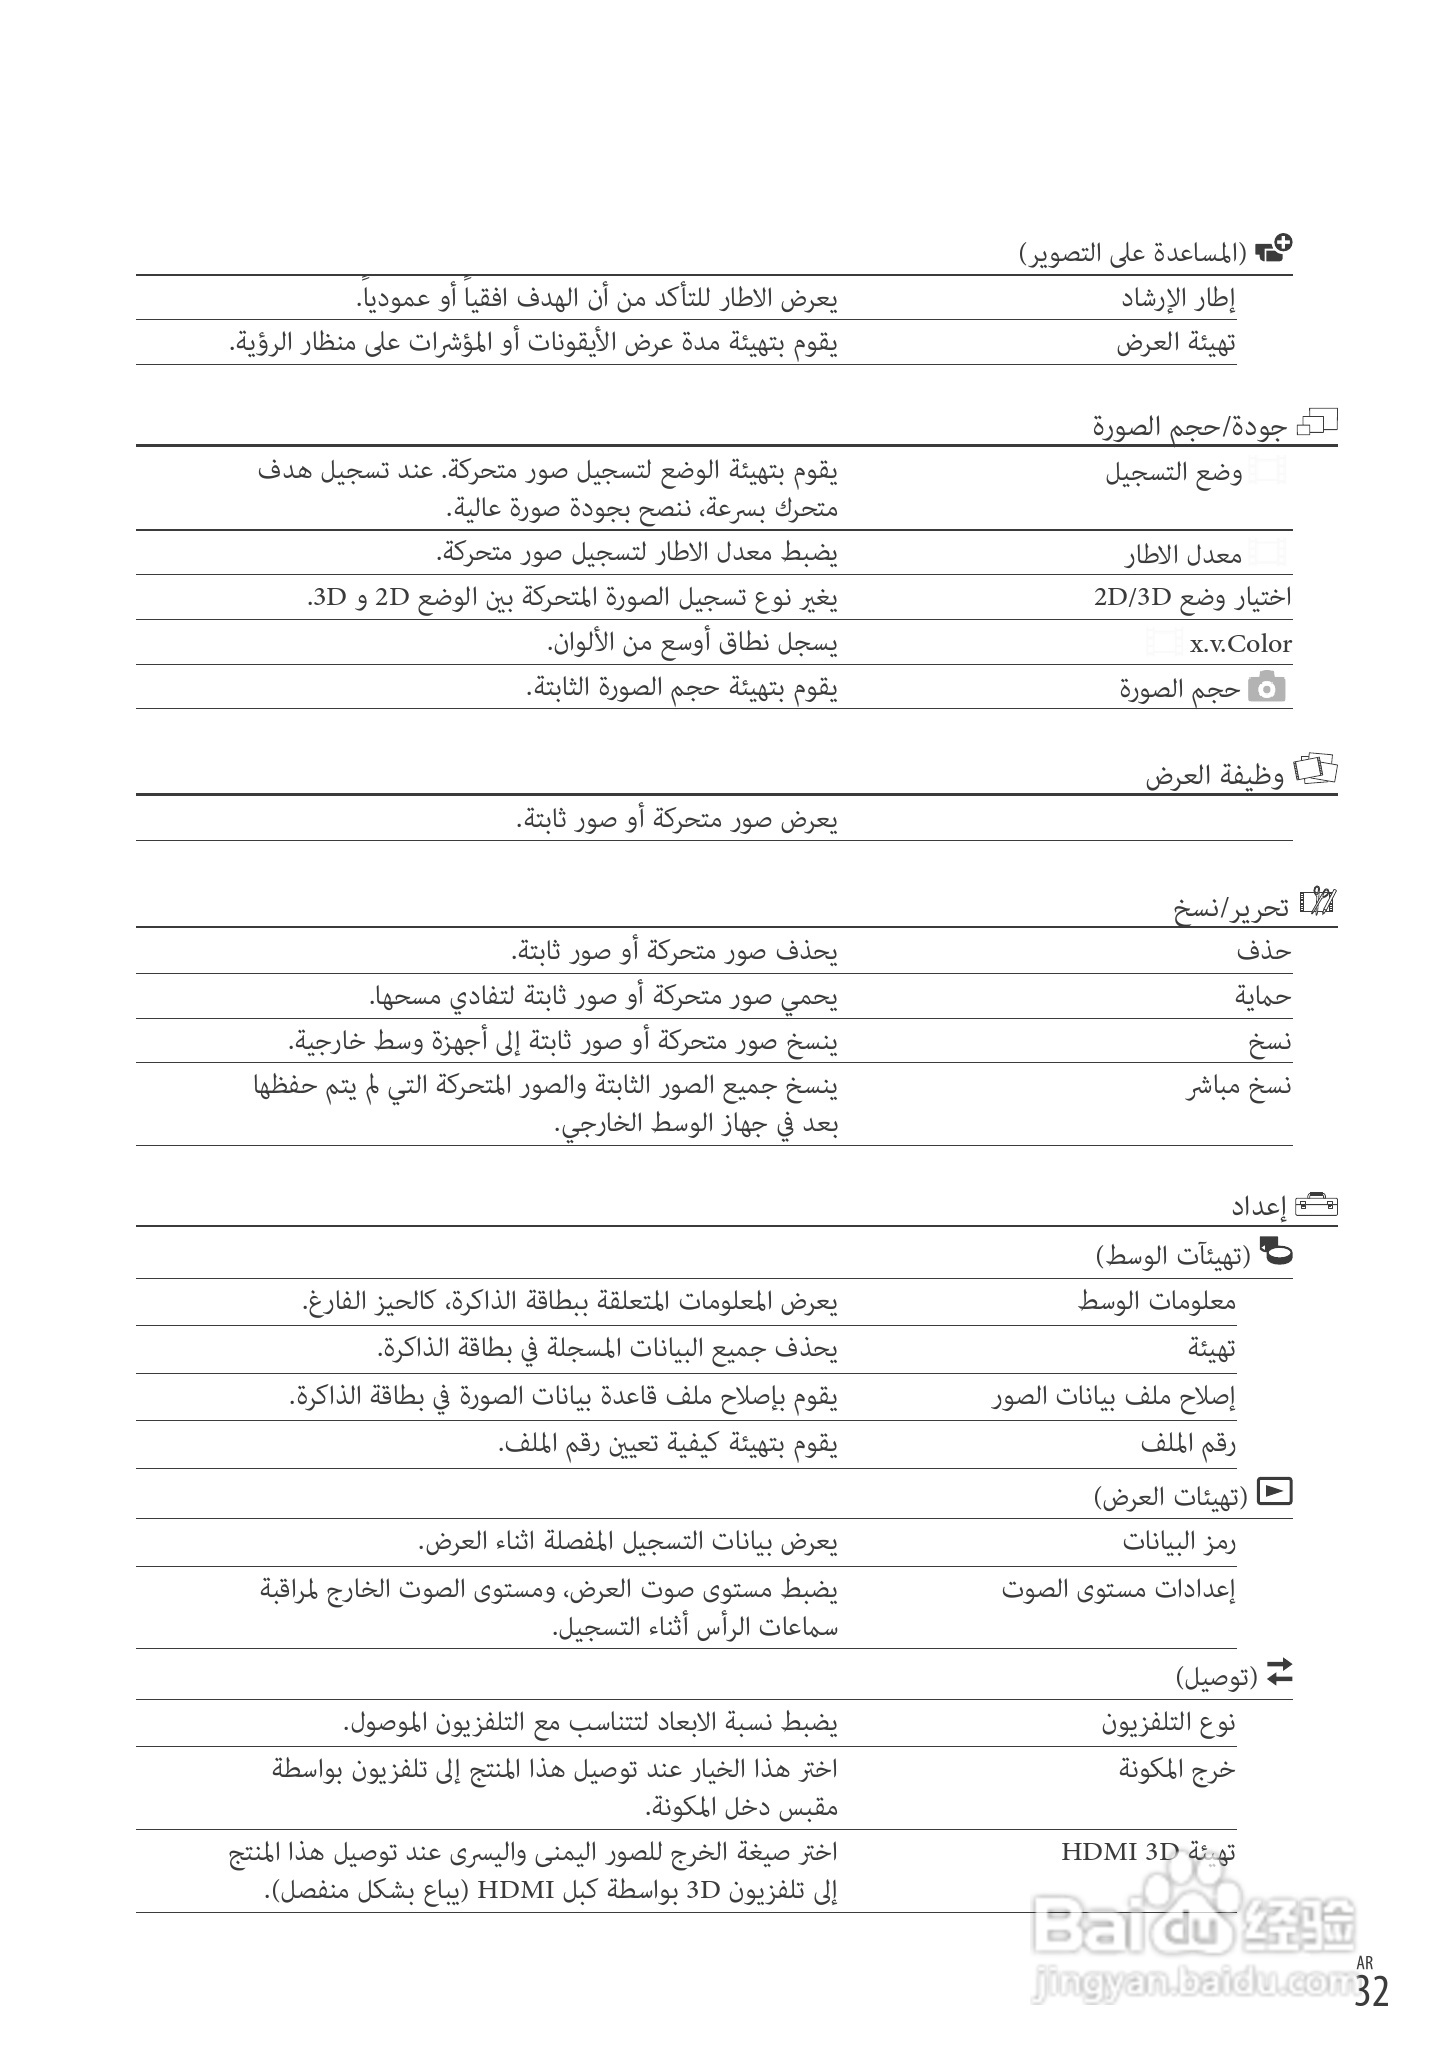 (المساعدة على التصوير)
إطار الإرشاد يعرض الاطار للتأكد من أن الهدف افقياً أو عمودياً.
تهيئة العرض يقوم بتهيئة مدة عرض الأيقونات أو المؤشرات على منظار الرؤية.
جودة/حجم الصورة
وضع التسجيل يقوم بتهيئة الوضع لتسجيل صور متحركة. عند تسجيل هدف
متحرك بسرعة، ننصح بجودة صورة عالية.
معدل الاطار يضبط معدل الاطار لتسجيل صور متحركة.
اختيار وضع 2D/3D يغير نوع تسجيل الصورة المتحركة بين الوضع 2D و 3D.
x.v.Color يسجل نطاق أوسع من الألوان.
حجم الصورة يقوم بتهيئة حجم الصورة الثابتة.
وظيفة العرض
يعرض صور متحركة أو صور ثابتة.
تحرير/نسخ
حذف يحذف صور متحركة أو صور ثابتة.
حماية يحمي صور متحركة أو صور ثابتة لتفادي مسحها.
نسخ ينسخ صور متحركة أو صور ثابتة إلى أجهزة وسط خارجية.
نسخ مباشر ينسخ جميع الصور الثابتة والصور المتحركة التي لم يتم حفظها
بعد في جهاز الوسط الخارجي.
إعداد
(تهيئآت الوسط)
معلومات الوسط يعرض المعلومات المتعلقة ببطاقة الذاكرة، كالحيز الفارغ.
تهيئة يحذف جميع البيانات المسجلة في بطاقة الذاكرة.
إصلاح ملف بيانات الصور يقوم بإصلاح ملف قاعدة بيانات الصورة في بطاقة الذاكرة.
رقم الملف يقوم بتهيئة كيفية تعيين رقم الملف.
(تهيئات العرض)
رمز البيانات يعرض بيانات التسجيل المفصلة اثناء العرض.
إعدادات مستوى الصوت يضبط مستوى صوت العرض، ومستوى الصوت الخارج لمراقبة
سماعات الرأس أثناء التسجيل.
(توصيل)
نوع التلفزيون يضبط نسبة الابعاد لتتناسب مع التلفزيون الموصول.
خرج المكونة اختر هذا الخيار عند توصيل هذا المنتج إلى تلفزيون بواسطة
مقبس دخل المكونة.
تهيئة HDMI 3D اختر صيغة الخرج للصور اليمنى واليسرى عند توصيل هذا المنتج
إلى تلفزيون 3D بواسطة كبل HDMI (يباع بشكل منفصل).
Baidu经验
jingyan.baidu.com
AR
32